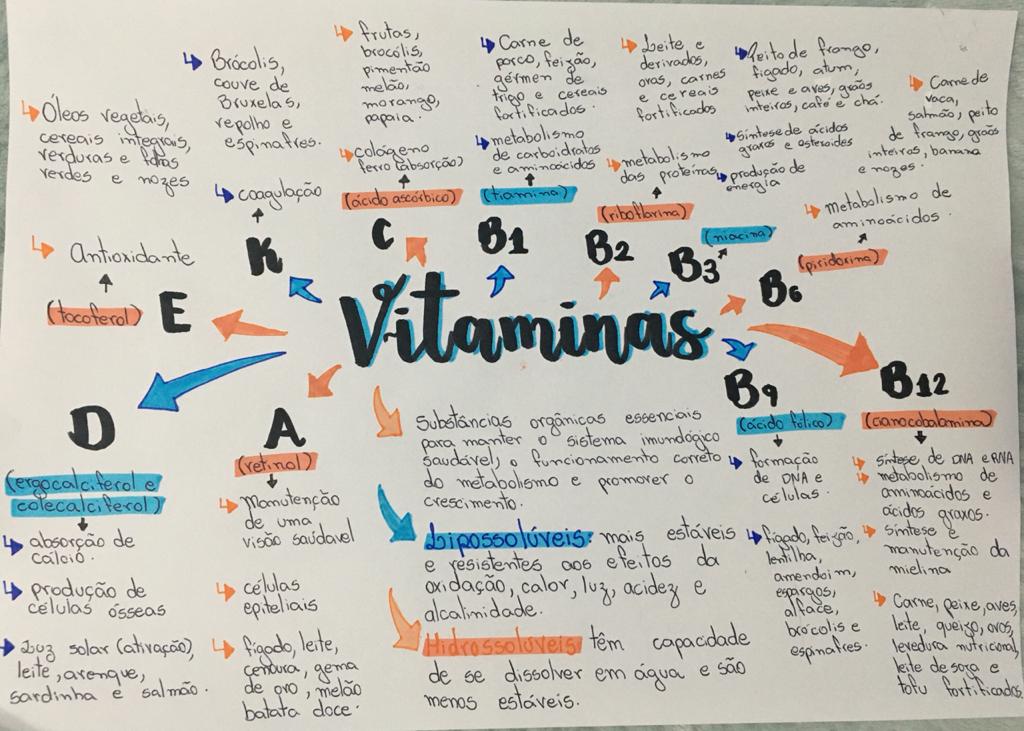 Vitaminas
Substâncias orgânicas essenciais
para manter o sistema imunológico
saudável, o funcionamento correto
do metabolismo e promover o
crescimento.
Lipossolúveis: mais estáveis
e resistentes aos efeitos da
oxidação, calor, luz, acidez e
alcalinidade.
Hidrossolúveis têm capacidade
de se dissolver em água e são
menos estáveis.
A
(retinol)
Manutenção
de uma
visão saudável
células
epiteliais
fígado, leite,
cenoura, gema
de ovo, melão
batata doce.
D
(ergocalciferol e
colecalciferol)
absorção de
cálcio.
produção de
células ósseas
Luz solar (ativação),
leite, arenque,
sardinha e salmão.
E
(tocoferol)
Antioxidante
Óleos vegetais,
cereais integrais,
verduras e
verdes e nozes
K
coagulação
Brócolis,
couve de
Bruxelas,
repolho e
espinafres.
C
(ácido ascórbico)
colágeno
ferro (absorção)
frutas,
brocólis,
pimentão
melão,
morango,
papaia.
B1
(tiamina)
metabolismo
de carboidratos
e aminoácidos
Carne de
porco, feijão,
gérmen de
trigo e cereais
fortificados.
B2
(riboflavina)
metabolismo
das proteínas
Leite e
derivados,
ovos, carnes
e cereais
fortificados
B3
(niacina)
produção de
energia
síntese de ácidos
graxos e esteroides
Peito de frango,
fígado, atum,
peixe e aves, grãos
inteiros, café e chá.
B6
(piridoxina)
metabolismo de
aminoácidos.
Carne de
vaca,
salmão, peito
de frango, grãos
inteiros, banana
e nozes.
B9
(ácido fólico)
formação
de DNA e
células.
fígado, feijão,
lentilha,
amendoim,
espargos,
alface,
brócolis e
espinafres.
B12
(cianocobalamina)
síntese de DNA e RNA
metabolismo de
aminoácidos e
ácidos graxos.
síntese e
manutenção da
mielina
Carne, peixe, aves,
leite, queijo, ovos,
levedura nutricional,
leite de soja e
tofu fortificados.